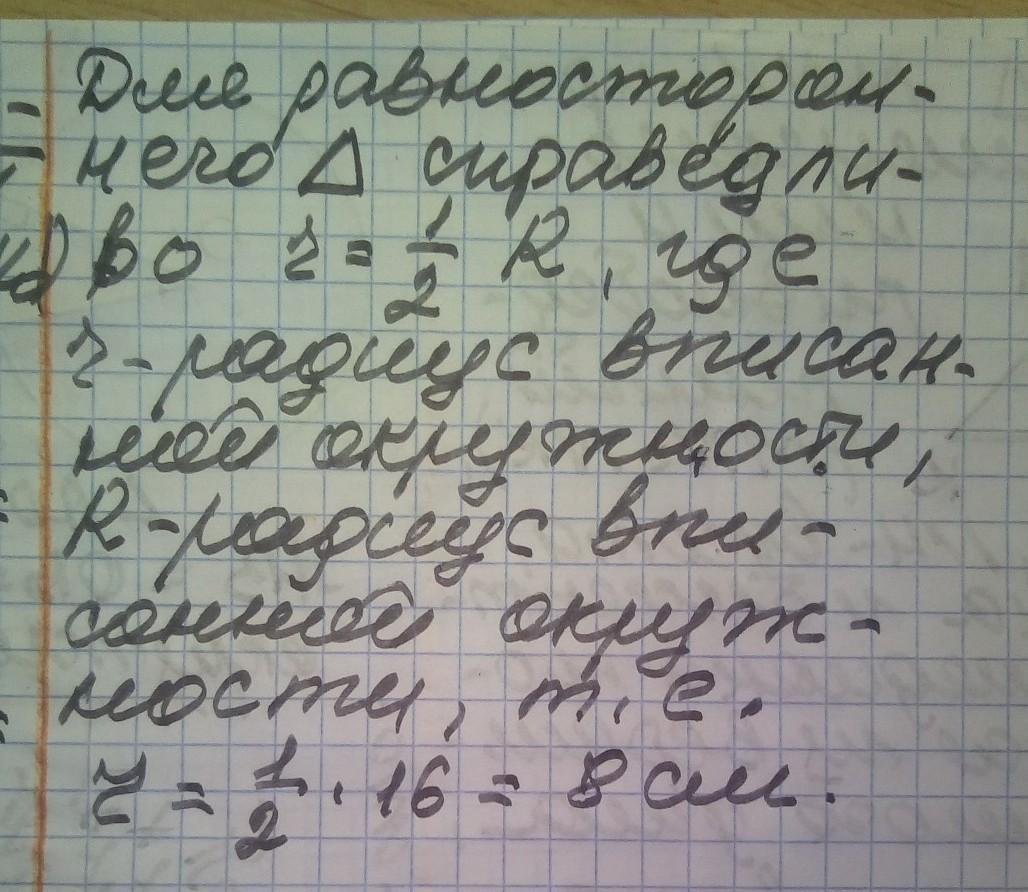 Для равносторон-
него Δ справедли-
во r = 1/2 R, где
r - радиус вписан-
ной окружности,
R - радиус впи-
санной окруж-
ности, т.е.
r = 1/2 · 16 = 8 см.